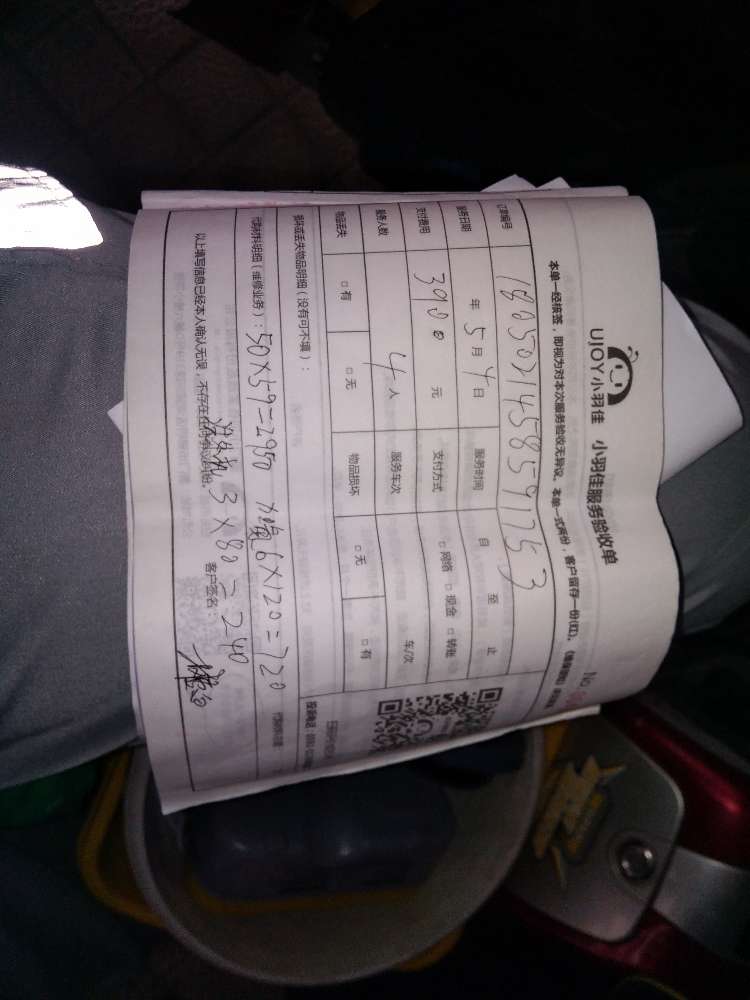 UJOY小羽佳 小羽佳服务验收单
No
本单一经核签,即视为对本次服务验收无异议。本单一式两份,客户留存一份(红)。
订单编号 1805021458591753
服务日期 年 5月4日 服务时间 自 至 止
支付费用 3900 元 支付方式 □网络 □现金 □转账
服务人数 4人 服务车次 车/次
物品丢失 □有 □无 物品损坏 □无 □有
损坏或丢失物品明细(没有可不填):
投诉电话:
代购材料明细(维修业务):50×59=2950 6×120=720
3×80=240
以上填写信息已经本人确认无误,不存在任何争议纠纷。
客户签名: